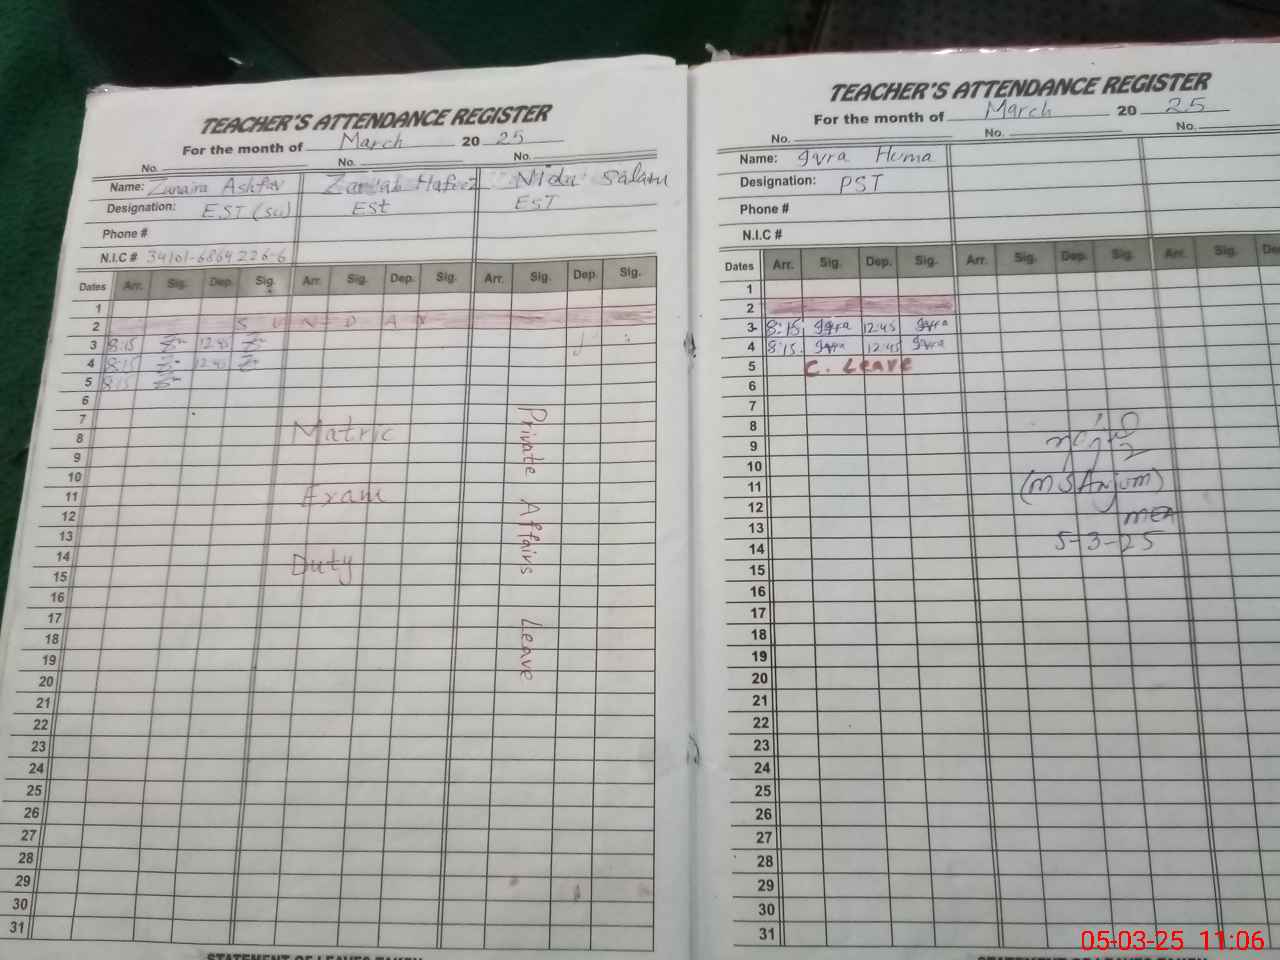 TEACHER'S ATTENDANCE REGISTER
For the month of March 20 25
No. No. No.
Name: Zunaira Ashfaq Zaryab Hafeez Nida Salam
Designation: EST (su) ESt EST
Phone #
N.I.C # 34101-6864226-6
Dates Arr. Sig. Dep. Sig. Arr. Sig. Dep. Sig. Arr. Sig. Dep. Sig.
1
2 S U N D A Y
3 8:15 12:45
4 8:15 12:45
5 8:15
6
7
8 Matric
9
10
11 Exam
12
13
14 Duty
15
16
17
18
19
20
21
22
23
24
25
26
27
28
29
30
31
Private Affairs Leave
STATEMENT OF LEAVES TAKEN
TEACHER'S ATTENDANCE REGISTER
For the month of March 20 25
No. No. No.
Name: Iqra Huma
Designation: PST
Phone #
N.I.C #
Dates Arr. Sig. Dep. Sig. Arr. Sig. Dep. Sig. Arr. Sig. De
1
2
3 8:15 Iqra 12:45 Iqra
4 8:15 Iqra 12:45 Iqra
5 C. Leave
6
7
8
9
10
11 (M S Anjum)
12
13 MEA
14 5-3-25
15
16
17
18
19
20
21
22
23
24
25
26
27
28
29
30
31
STATEMENT OF LEAVES TAKEN
05-03-25 11:06